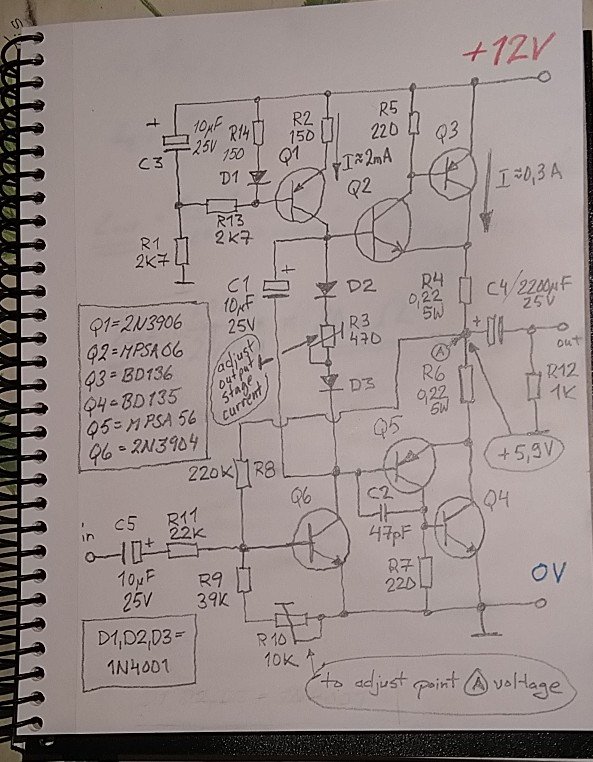 +12V
+
10µF
25V
C3
R14
150
R2
150
R5
220
Q3
Q1
I≈2mA
D1
Q2
I≈0,3A
R13
2K7
R1
2K7
C1
+
10µF
25V
D2
R3
470
R4
0,22
5W
C4/2200µF
25V
+
out
Q1=2N3906
Q2=MPSA06
Q3=BD136
Q4=BD135
Q5=MPSA56
Q6=2N3904
adjust
output
stage
current
D3
A
R6
0,22
5W
R12
1K
+5,9V
Q5
220K
R8
Q6
C2
47pF
Q4
in
C5
+
R11
22K
10µF
25V
R9
39K
R7
220
0V
R10
10K
D1,D2,D3=
1N4001
to adjust point A voltage